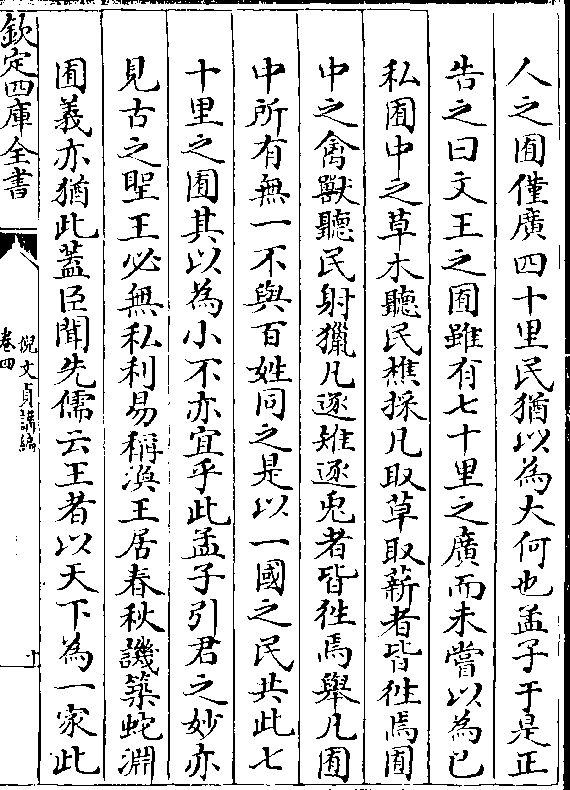 人之囿僅廣四十里民猶以為大何也孟子于是正
告之曰文王之囿雖有七十里之廣而未嘗以為已
私囿中之草木聽民樵採凡取草取薪者皆徃焉囿
中之禽獸聽民射獵凡逐雉逐兎者皆徃焉舉凡囿
中所有無一不與百姓同之是以一國之民共此七
十里之囿其以為小不亦宜乎此孟子引君之妙亦
見古之聖王必無私利易稱渙王居春秋譏築蛇淵
囿義亦猶此葢臣聞先儒云王者以天下為一家此
欽定四庫全書
倪文貞講編
卷四
十